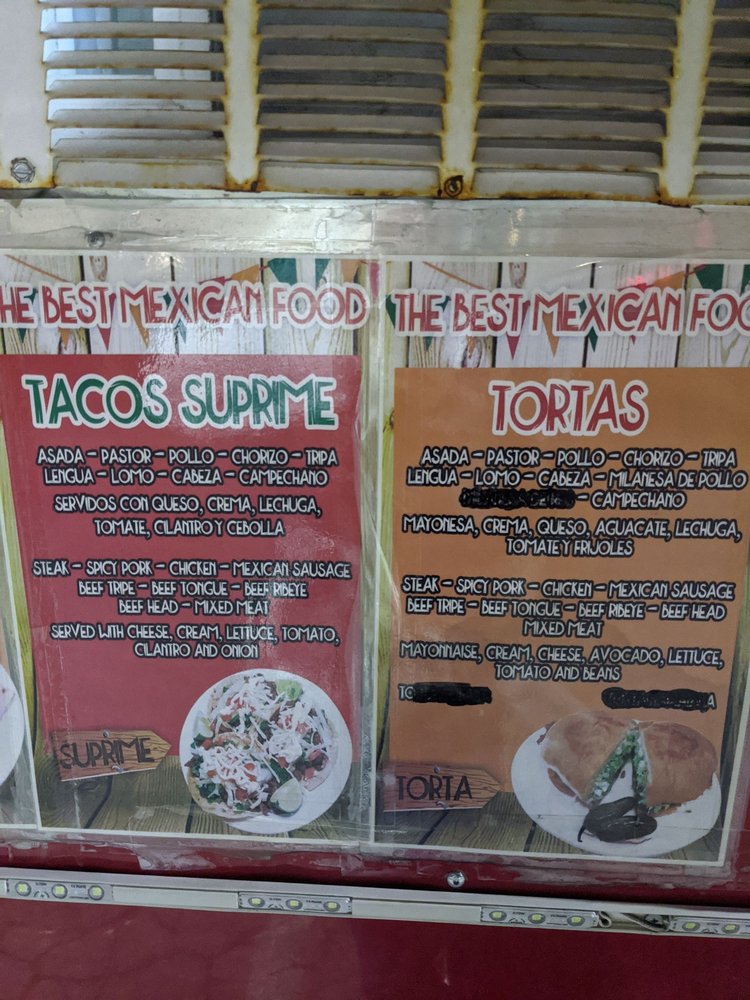 HE BEST MEXICAN FOOD
TACOS SUPRIME
ASADA - PASTOR - POLLO - CHORIZO - TRIPA
LENGUA - LOMO - CABEZA - CAMPECHANO
SERVIDOS CON QUESO, CREMA, LECHUGA,
TOMATE, CILANTRO Y CEBOLLA
STEAK - SPICY PORK - CHICKEN - MEXICAN SAUSAGE
BEEF TRIPE - BEEF TONGUE - BEEF RIBEYE
BEEF HEAD - MIXED MEAT
SERVED WITH CHEESE, CREAM, LETTUCE, TOMATO,
CILANTRO AND ONION
SUPRIME
THE BEST MEXICAN FOO
TORTAS
ASADA - PASTOR - POLLO - CHORIZO - TRIPA
LENGUA - LOMO - CABEZA - MILANESA DE POLLO
- CAMPECHANO
MAYONESA, CREMA, QUESO, AGUACATE, LECHUGA,
TOMATE Y FRIJOLES
STEAK - SPICY PORK - CHICKEN - MEXICAN SAUSAGE
BEEF TRIPE - BEEF TONGUE - BEEF RIBEYE - BEEF HEAD
MIXED MEAT
MAYONNAISE, CREAM, CHEESE, AVOCADO, LETTUCE,
TOMATO AND BEANS
TORTA